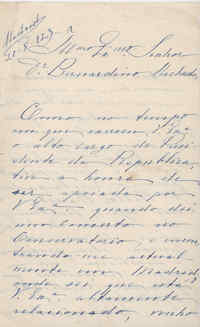 Madrid
Exmo Snr Senhor
Dr. Bernardino Machado
Como no tempo
em que exerceu V. Exª
o alto cargo de Presi
dente da Republica,
tive a honra de
ser apoiada por
V. Exª quando dei
um concerto no
Conservatorio, e encon
trando me actual
mente em Madrid,
onde sei que está
V. Exª altamente
relacionado, venho